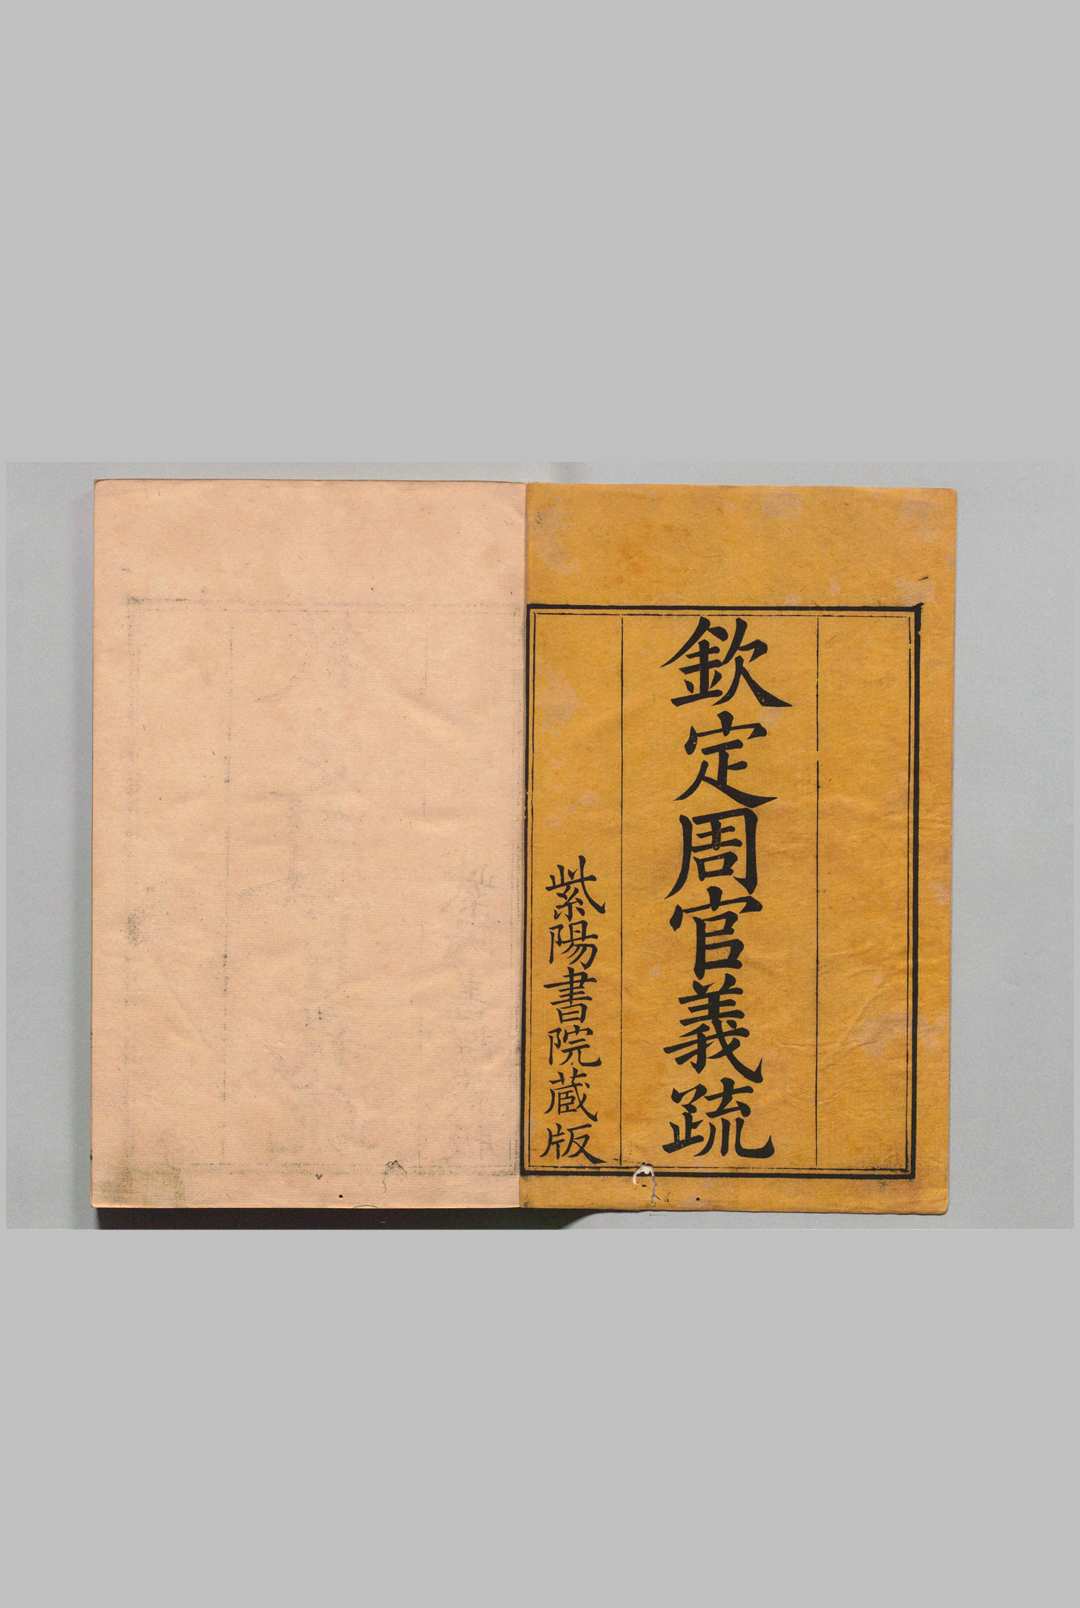 欽定周官義疏
紫陽書院蔵版